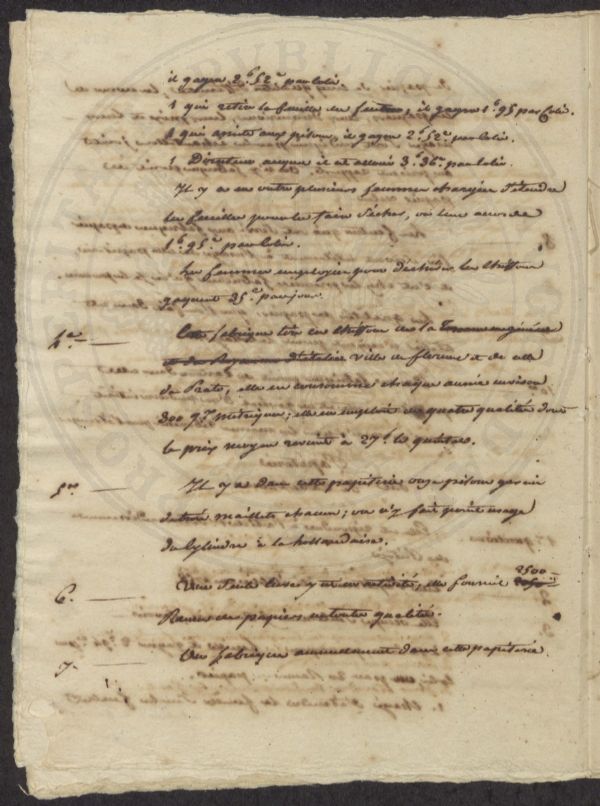 il gagne 2.f 52.c par colis.
1 qui retire la feuille du feutre, il gagne 1.f 95 par Colis.
1 qui assiste aux pistons, il gagne 2.f 52.c par Colis.
1 Directeur auquel il est alloué 3.f 36.c par colis.
Il y a en outre plusieurs femmes chargées d'étendre
les feuilles pour les faire sécher, où leur accorde
1.f 95.c par Colis.
Les femmes employées pour déchirer les chiffons
gagnent 35.c par jour.
4.e — Cette fabrique tire ses chiffons de la
et du Royaume d'Italie ville de florence et de celle
de Prato, elle en consomme chaque année environ
300 q.x métriques; elle en employe de quatre qualités dont
le prix moyen revient à 27.f le quintal.
5.e — Il y a dans cette papéterie onze pistons garnis
de trois maillets chacun; on n'y fait point usage
du Cylindre à la hollandaise.
6. — Une seule cuve y est en activité, elle fournit 2500
Rames de papiers de toute qualité.
7. — On fabrique annuellement dans cette papéterie